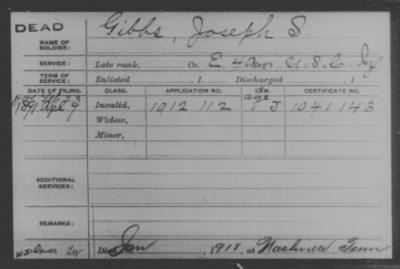 DEAD
NAME OF SOLDIER: Gibbs, Joseph S.
SERVICE: Late rank, Co. E, 4 U.S.C. Inf
TERM OF SERVICE: Enlisted , 1 Discharged , 1
DATE OF FILING. CLASS. APPLICATION NO. CERTIFICATE NO.
1891 Apl 9 Invalid, 1012112 J 1041143
Widow,
Minor,
ADDITIONAL SERVICES:
REMARKS:
Died Jan , 1918, at Nashville Tenn